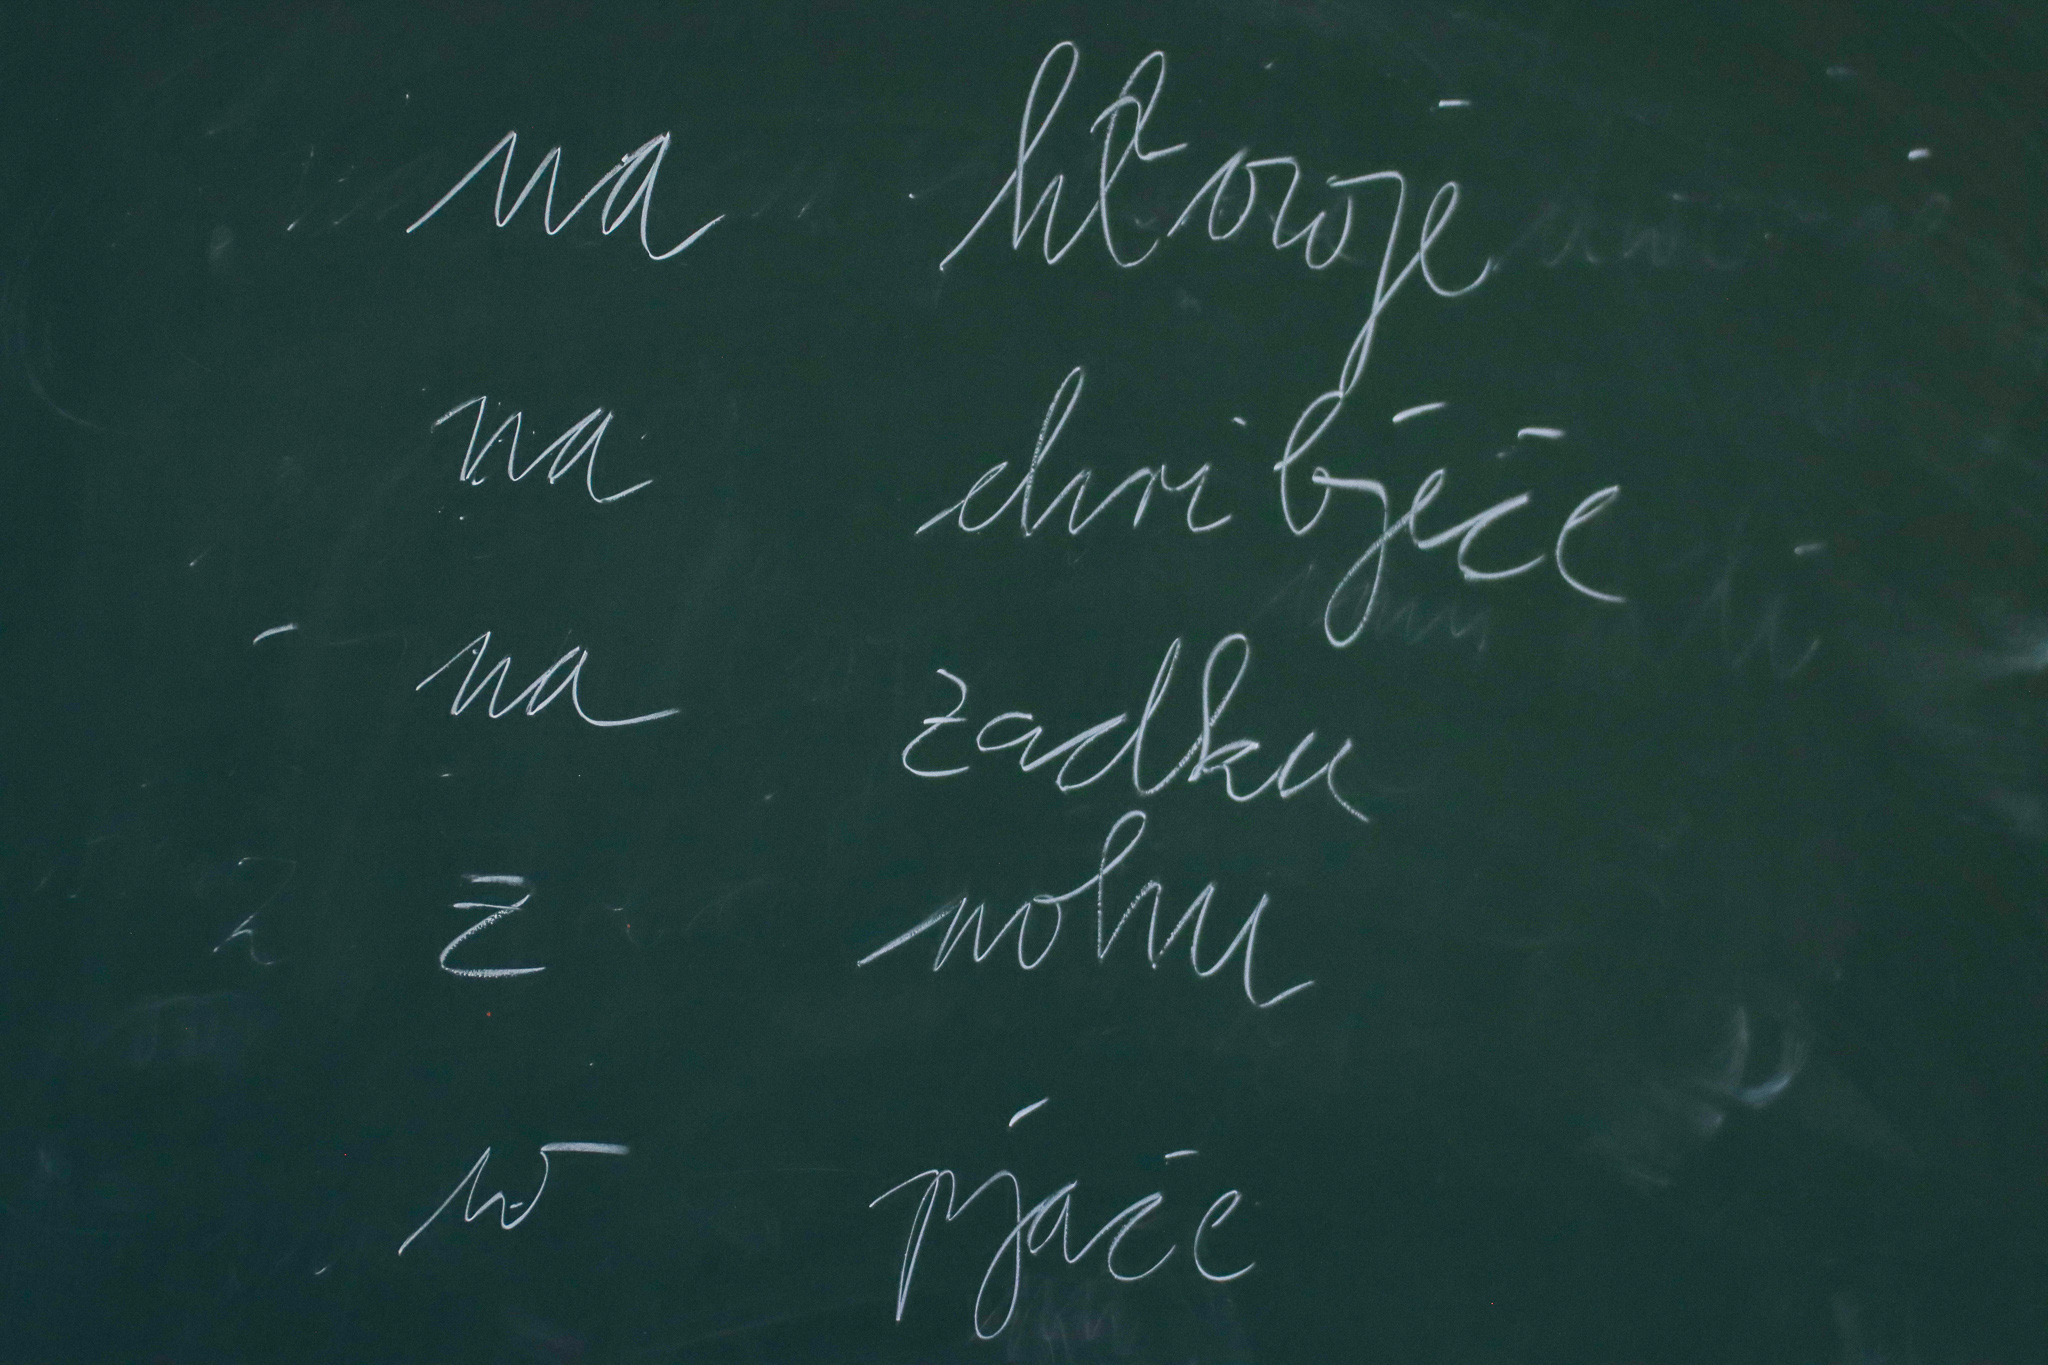 na hłowje
na chribjeće
na zadku
z nohu
w pjaće